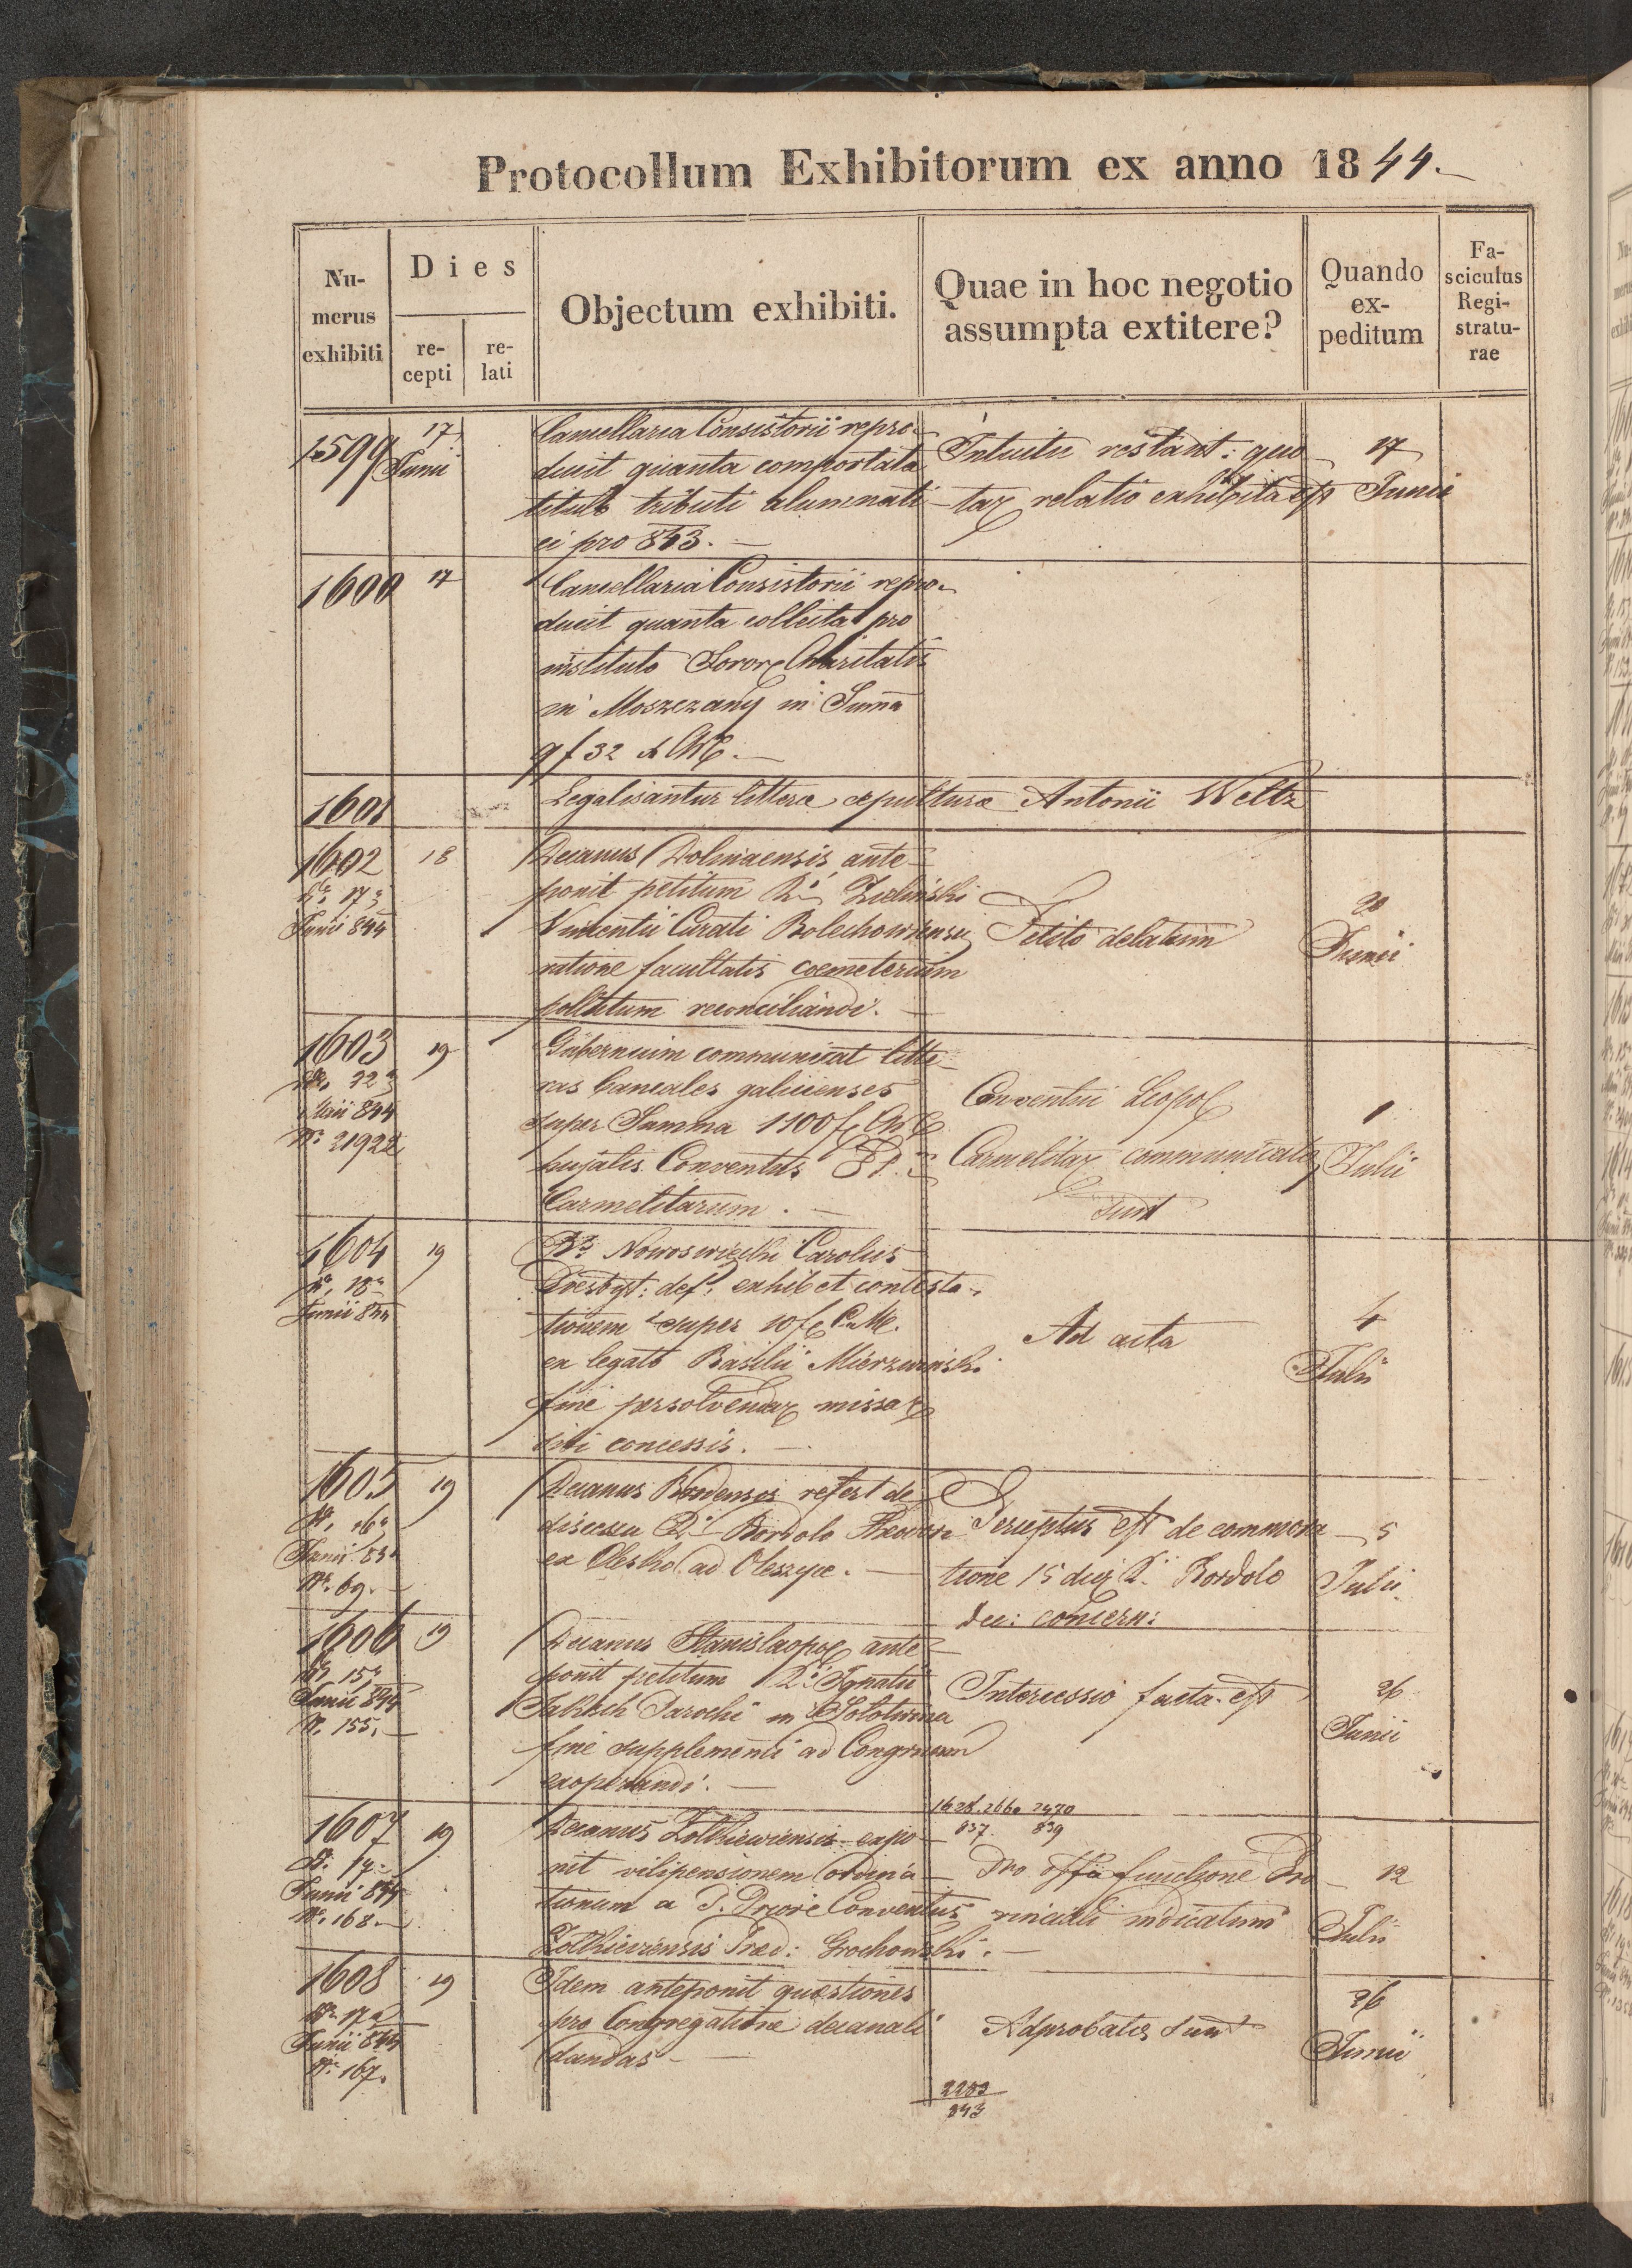 Protocollum Exhibitorum ex anno 1844.
Numerus exhibiti
Dies
recepti
relati
Objectum exhibiti.
Quae in hoc negotio assumpta extitere?
Quando expeditum
Fasciculus Registraturae
1599
17 Junii
Cancellaria Consistorii repro-
ducit quanta comportata
titulo tributi alumnati-
ci pro 843. —
Intuitu restant: quo-
tar relatio exhibita est
17
Junii
1600
17
Cancellaria Consistorii repro-
ducit quanta collecta pro
instituto Soror Charitatis
in Moszczany in Suma
9 f 32 x CM. —
1601
Legalisantur litterae sepulturae Antonii Weltz
1602
18
dto 17a
Junii 844
Decanus Dolinaensis ante-
ponit petitum Rdi Zielinski
Vincentii Curati Bolechowiensis
ratione facultatis coemeterium
pollutum reconciliandi. —
Petito delatum
20
Junii
1603
19
dto 22a
Maii 844
Nr. 21922
Gubernium communicat litte-
ras Camerales galicienses
super Summa 1100 f CM
hujatis Conventus PP.
Carmelitarum. —
Conventui Leopol
Carmelitar communicatae
sunt
1
Julii
1604
19
dto 18a
Junii 844
Rds Nowoswiecki Carolus
Presbyt: def: exhibet contesta-
tionem super 10 f C.M.
ex legato Basilii Mierzwinski
fine persolvendar missar
sibi concessis. —
Ad acta
4
Julii
1605
19
dto 16a
Junii 844
Nr. 69. —
Decanus Brodensis refert de
discessu Rdi Bordolo
ex Olesko ad Oleszyce. —
Perceptus est de commora-
tione 15 dier Rdi Bordolo
dec: concern:
5
Julii
1606
19
dto 15a
Junii 844
N. 155. —
Decanus Stanislaopol ante-
ponit petitum Rdi Ignatii
Jakisch Parochi in Solotwina
fine supplementi ad Congruam
exoperandi. —
Intercessio facta est
26
Junii
1628. 2660 2470
837. 839
1607
19
dto 14a
Junii 844
Nr. 168. —
Decanus Zolkiewiensis expo-
nit vilipensionem ordina-
tionum a P. Priore Conventus
Zolkieviensis Praed: Grochowski. —
Pro offa functione Pro-
vinciali indicatum
12
Julii
1608
19
dto 17a
Junii 844
Nr. 167.
Idem anteponit quaestiones
pro Congregatione decanali
dandas —
Adprobatae sunt
26
Junii
2203
843